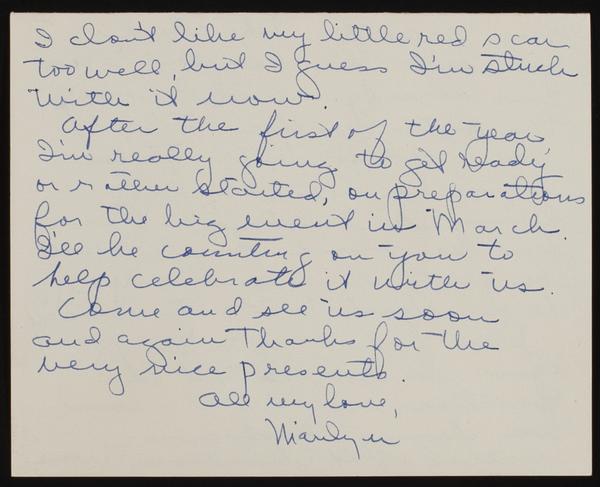 I don't like my little red scar
too well, but I guess I'm stuck
with it now.
After the first of the year
I'm really going to get ready,
or rather started, on preparations
for the big event in March.
I'll be counting on you to
help celebrate it with us.
Come and see us soon
and again Thanks for the
very nice presents.
All my love,
Marilyn